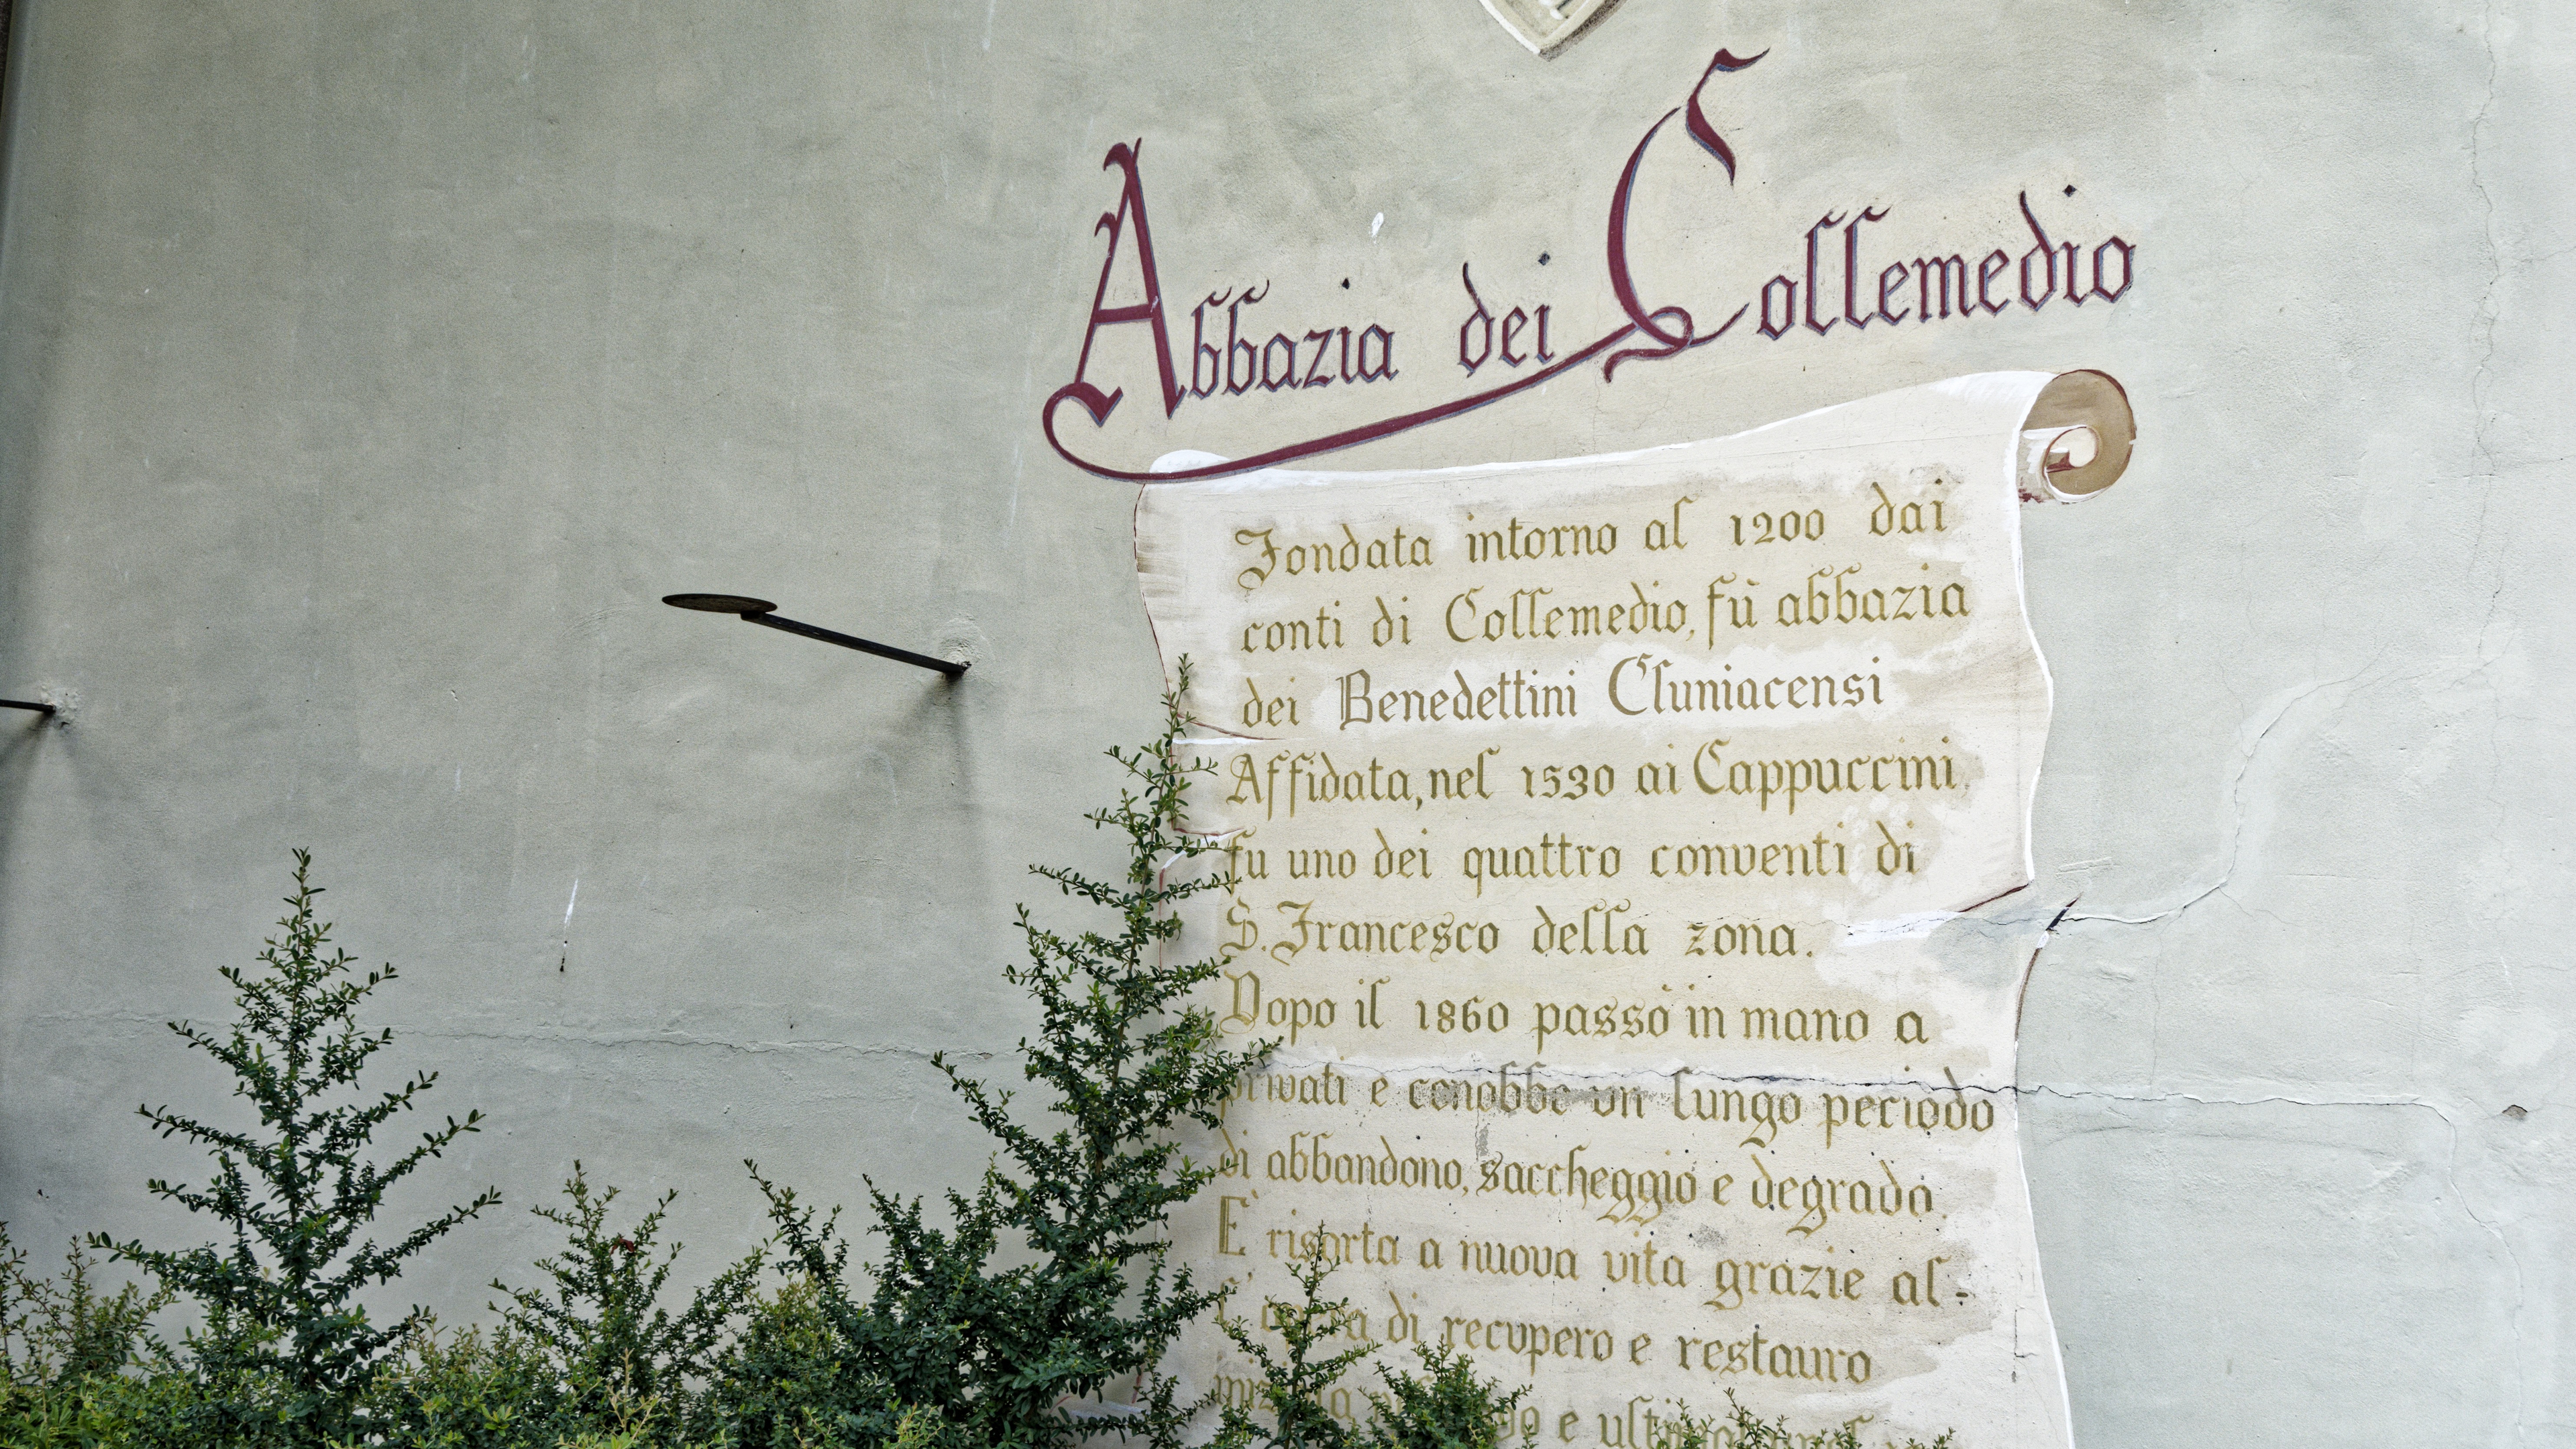 Abbazia dei Collemedio
Fondata intorno al 1200 dai
conti di Collemedio, fù abbazia
dei Benedettini Cluniacensi
Affidata, nel 1530 ai Cappuccini,
fu uno dei quattro conventi di
S. Francesco della zona.
Dopo il 1860 passò in mano a
privati e conobbe un lungo periodo
di abbandono, saccheggio e degrado.
E' risorta a nuova vita grazie al-
l'opera di recupero e restauro
e